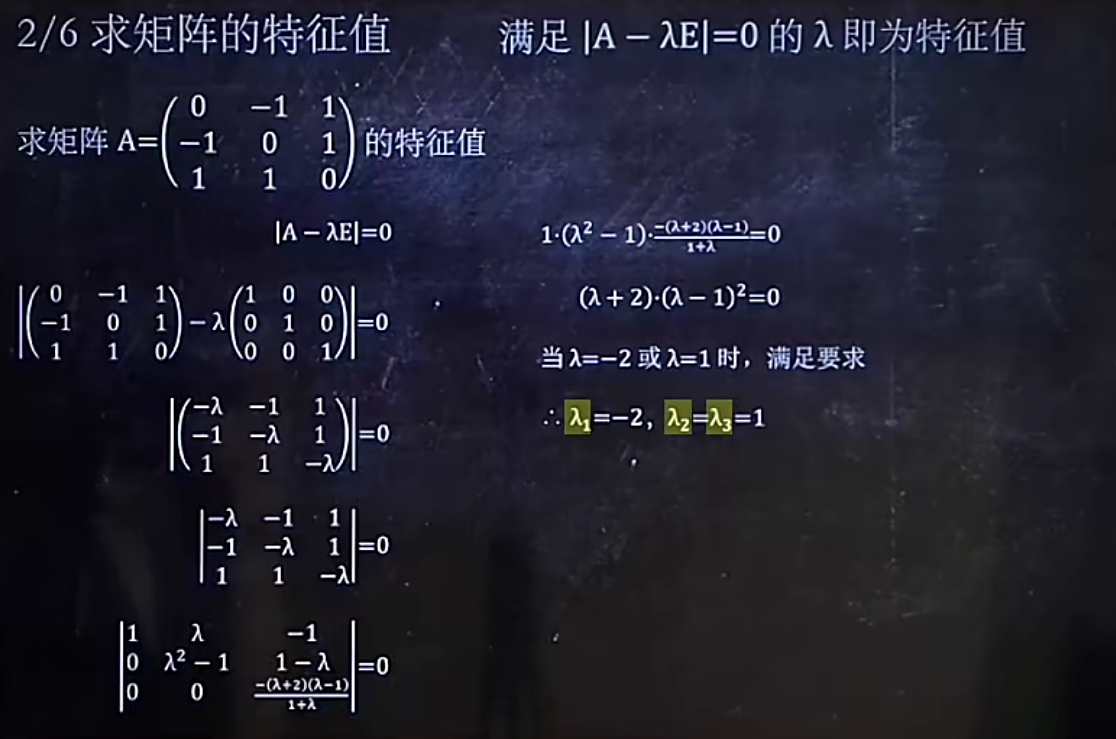 2/6 求矩阵的特征值
满足 |A − λE|=0 的 λ 即为特征值
求矩阵 A=(0 −1 1; −1 0 1; 1 1 0) 的特征值
|A − λE|=0
|(0 −1 1; −1 0 1; 1 1 0) − λ(1 0 0; 0 1 0; 0 0 1)|=0
|(−λ −1 1; −1 −λ 1; 1 1 −λ)|=0
|−λ −1 1; −1 −λ 1; 1 1 −λ|=0
|1 λ −1; 0 λ² − 1 1 − λ; 0 0 −(λ+2)(λ−1)/1+λ|=0
1·(λ² − 1)·−(λ+2)(λ−1)/1+λ=0
(λ + 2)·(λ − 1)²=0
当 λ=−2 或 λ=1 时，满足要求
∴ λ₁=−2，λ₂=λ₃=1